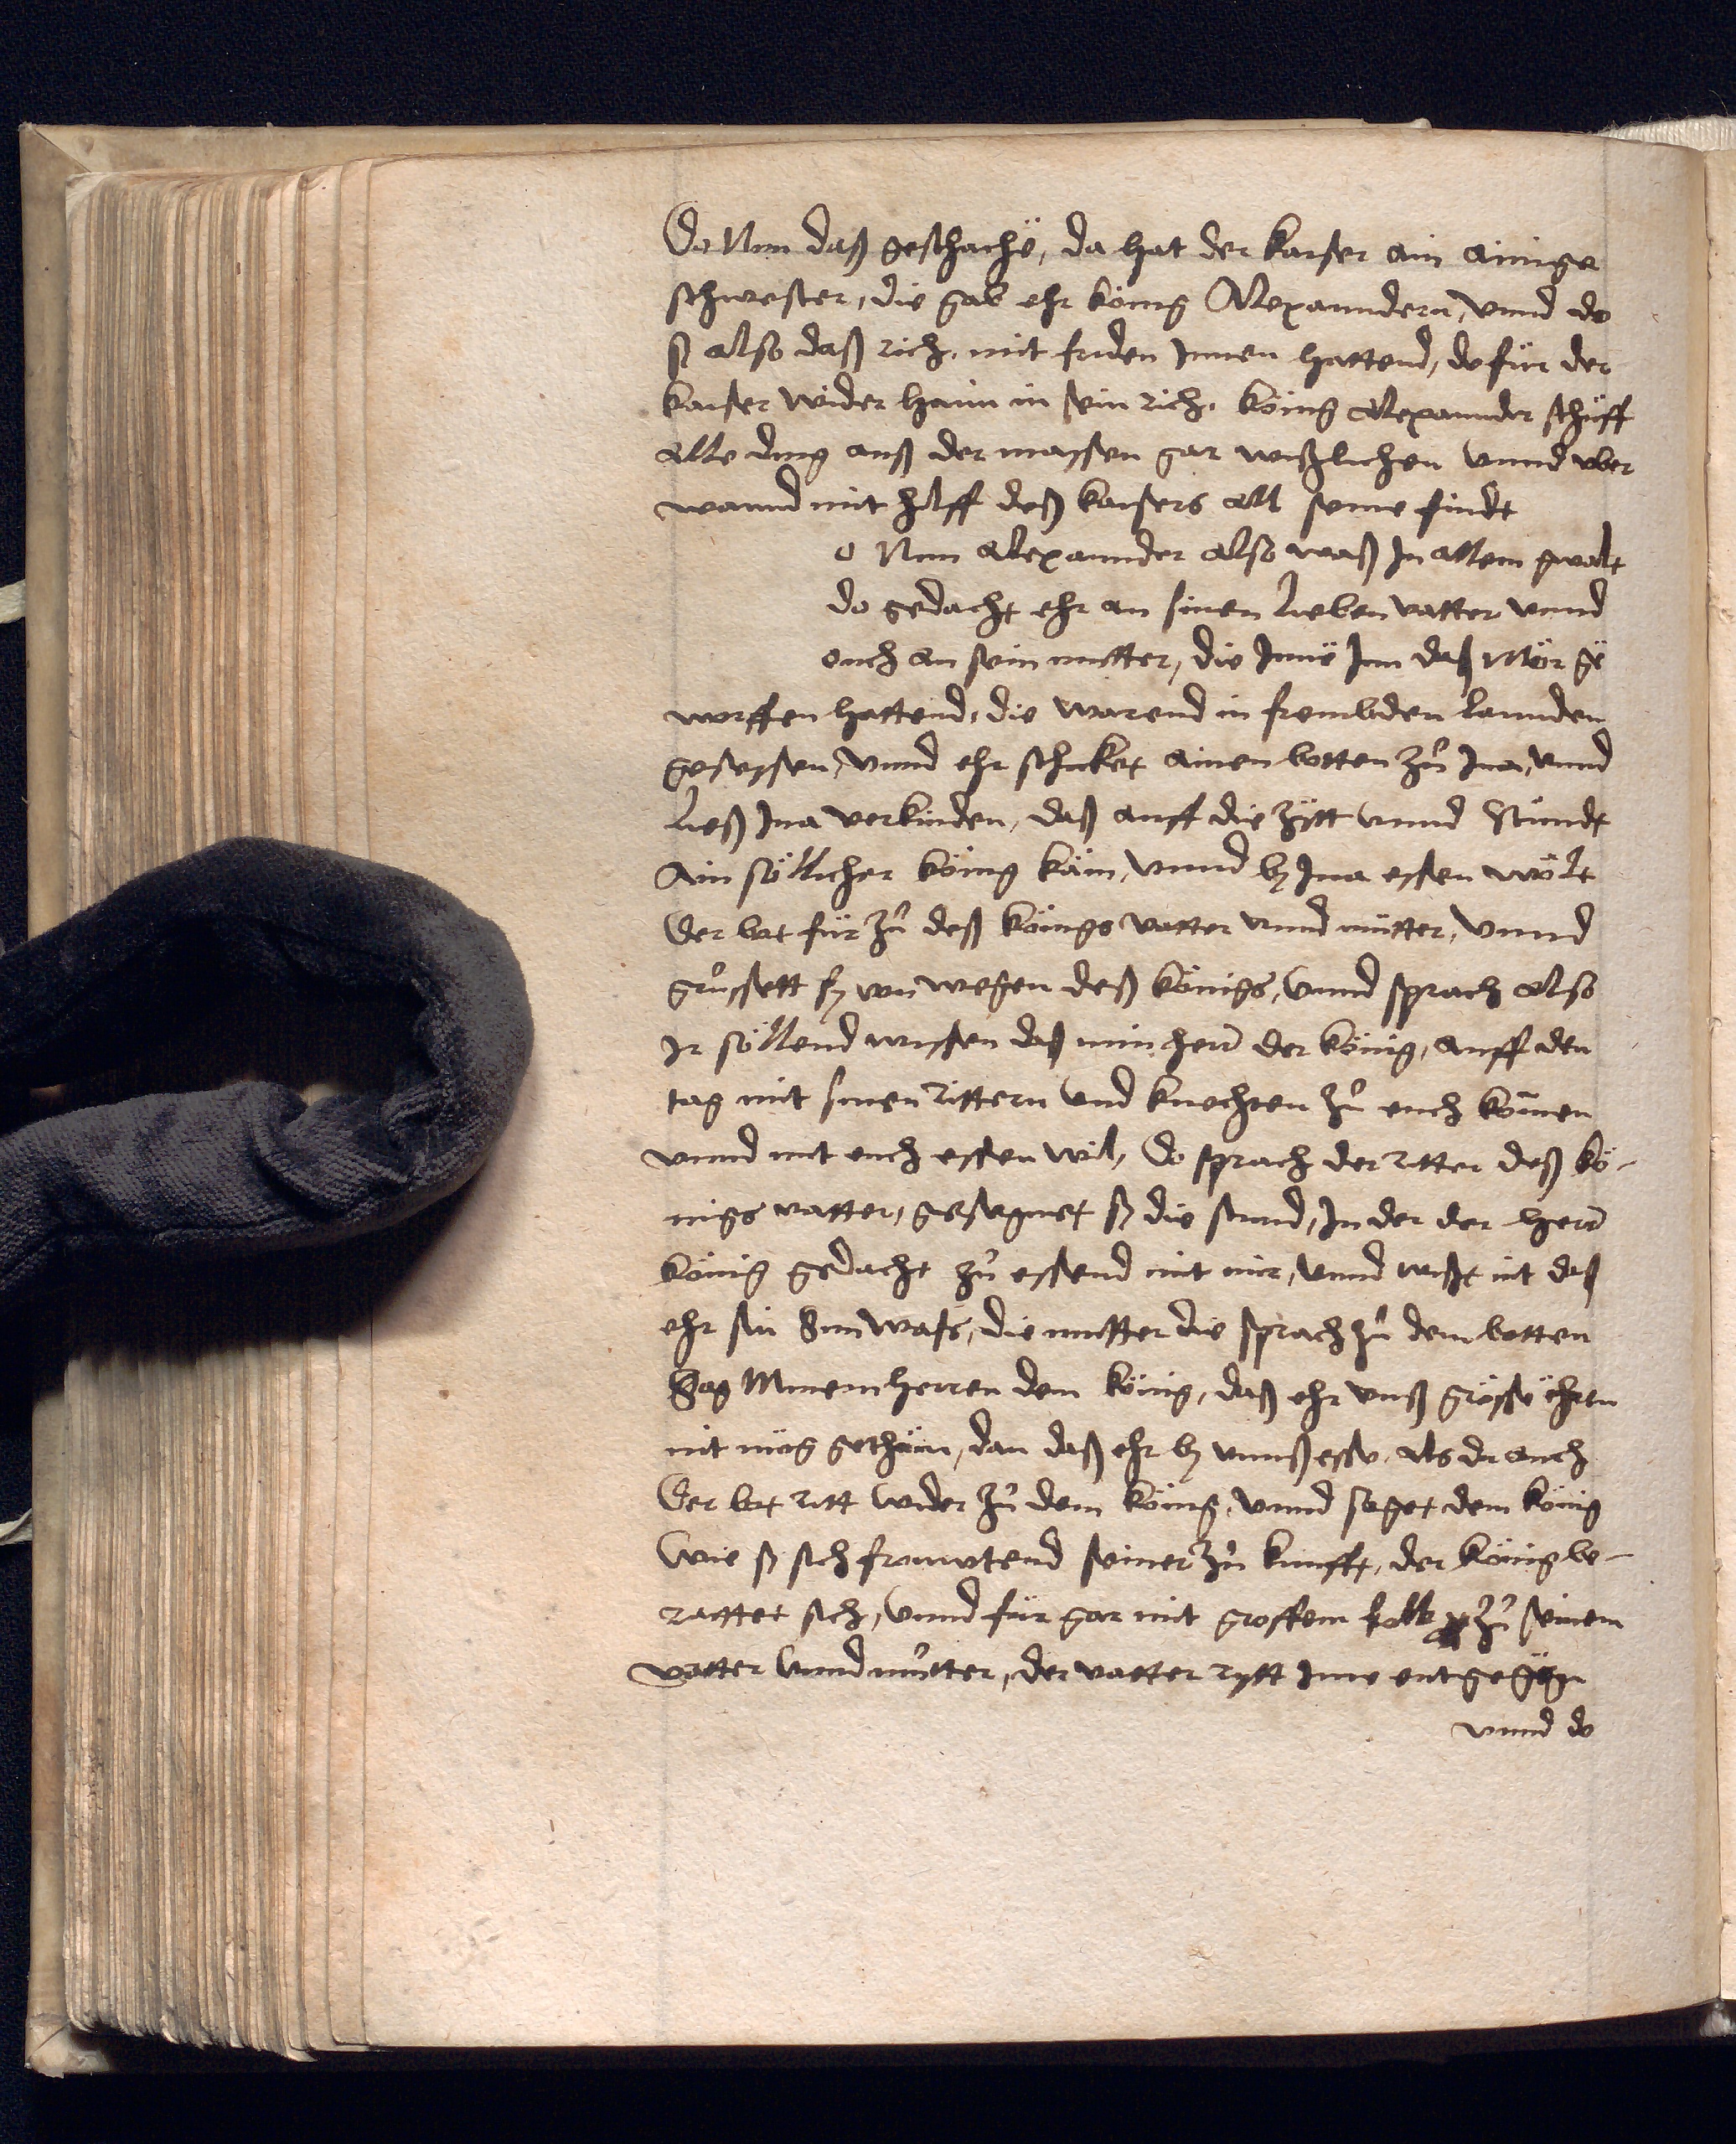 Do Nun daß geschache, da hat der kaiser ain ainige
schwester, die gab ehr könig Alexanndern, vnnd do
sy also daß rich, mit friden Innen hattend, do für der
kaiser wider haim in sein rich, könig Alexannder schüff
alle ding auß der massen gar wißlichen vnnd vber
wannd mit hilff deß kaisers all seine findt
o Nun Alexannder also waß In allem gwalt
do gedacht ehr an sinen lieben vatter vnnd
ouch an sein mutter, die Inne Inn daß Mör ge
worffen hattend, die warend in frembden lannden
gesessen, vnnd ehr schicket ainen botten zů Ina, vnnd
Ließ Ina verkinden, daß auff die zytt vnnd stundt
Ain söllicher könig käm, vnnd by Ina essen wölt
Der bot für zů deß königs vatter vnnd mütter, vnnd
grůssett sy von wegen deß königs, vnnd sprach also
Ir söllend wissen daß min herr der könig, auff den
tag mit sinen rittern vnd knechten zů euch komen
vnnd mit euch essen wil, Do sprach der ritter deß kö-
nigs vatter, gesegnet sy die stund, In der der herr
könig gedacht zů essend mit mir, vnnd wißt nit daß
ehr sin Sun waß, die mutter die sprach zů dem botten
Sag Minem herren dem könig, daß ehr vnß grösse ehren
nit müg gethain, dan daß ehr by vnnß esse, als du auch
Der bot ritt wider zů dem könig, vnnd saget dem könig
Wie sy sich frouwtend seiner zů kunfft, der könig be-
rattet sich, vnnd für gar mit grossem folk zů seinem
vatter vnnd můtter, der vatter rytt Ime entgegen
vnnd do